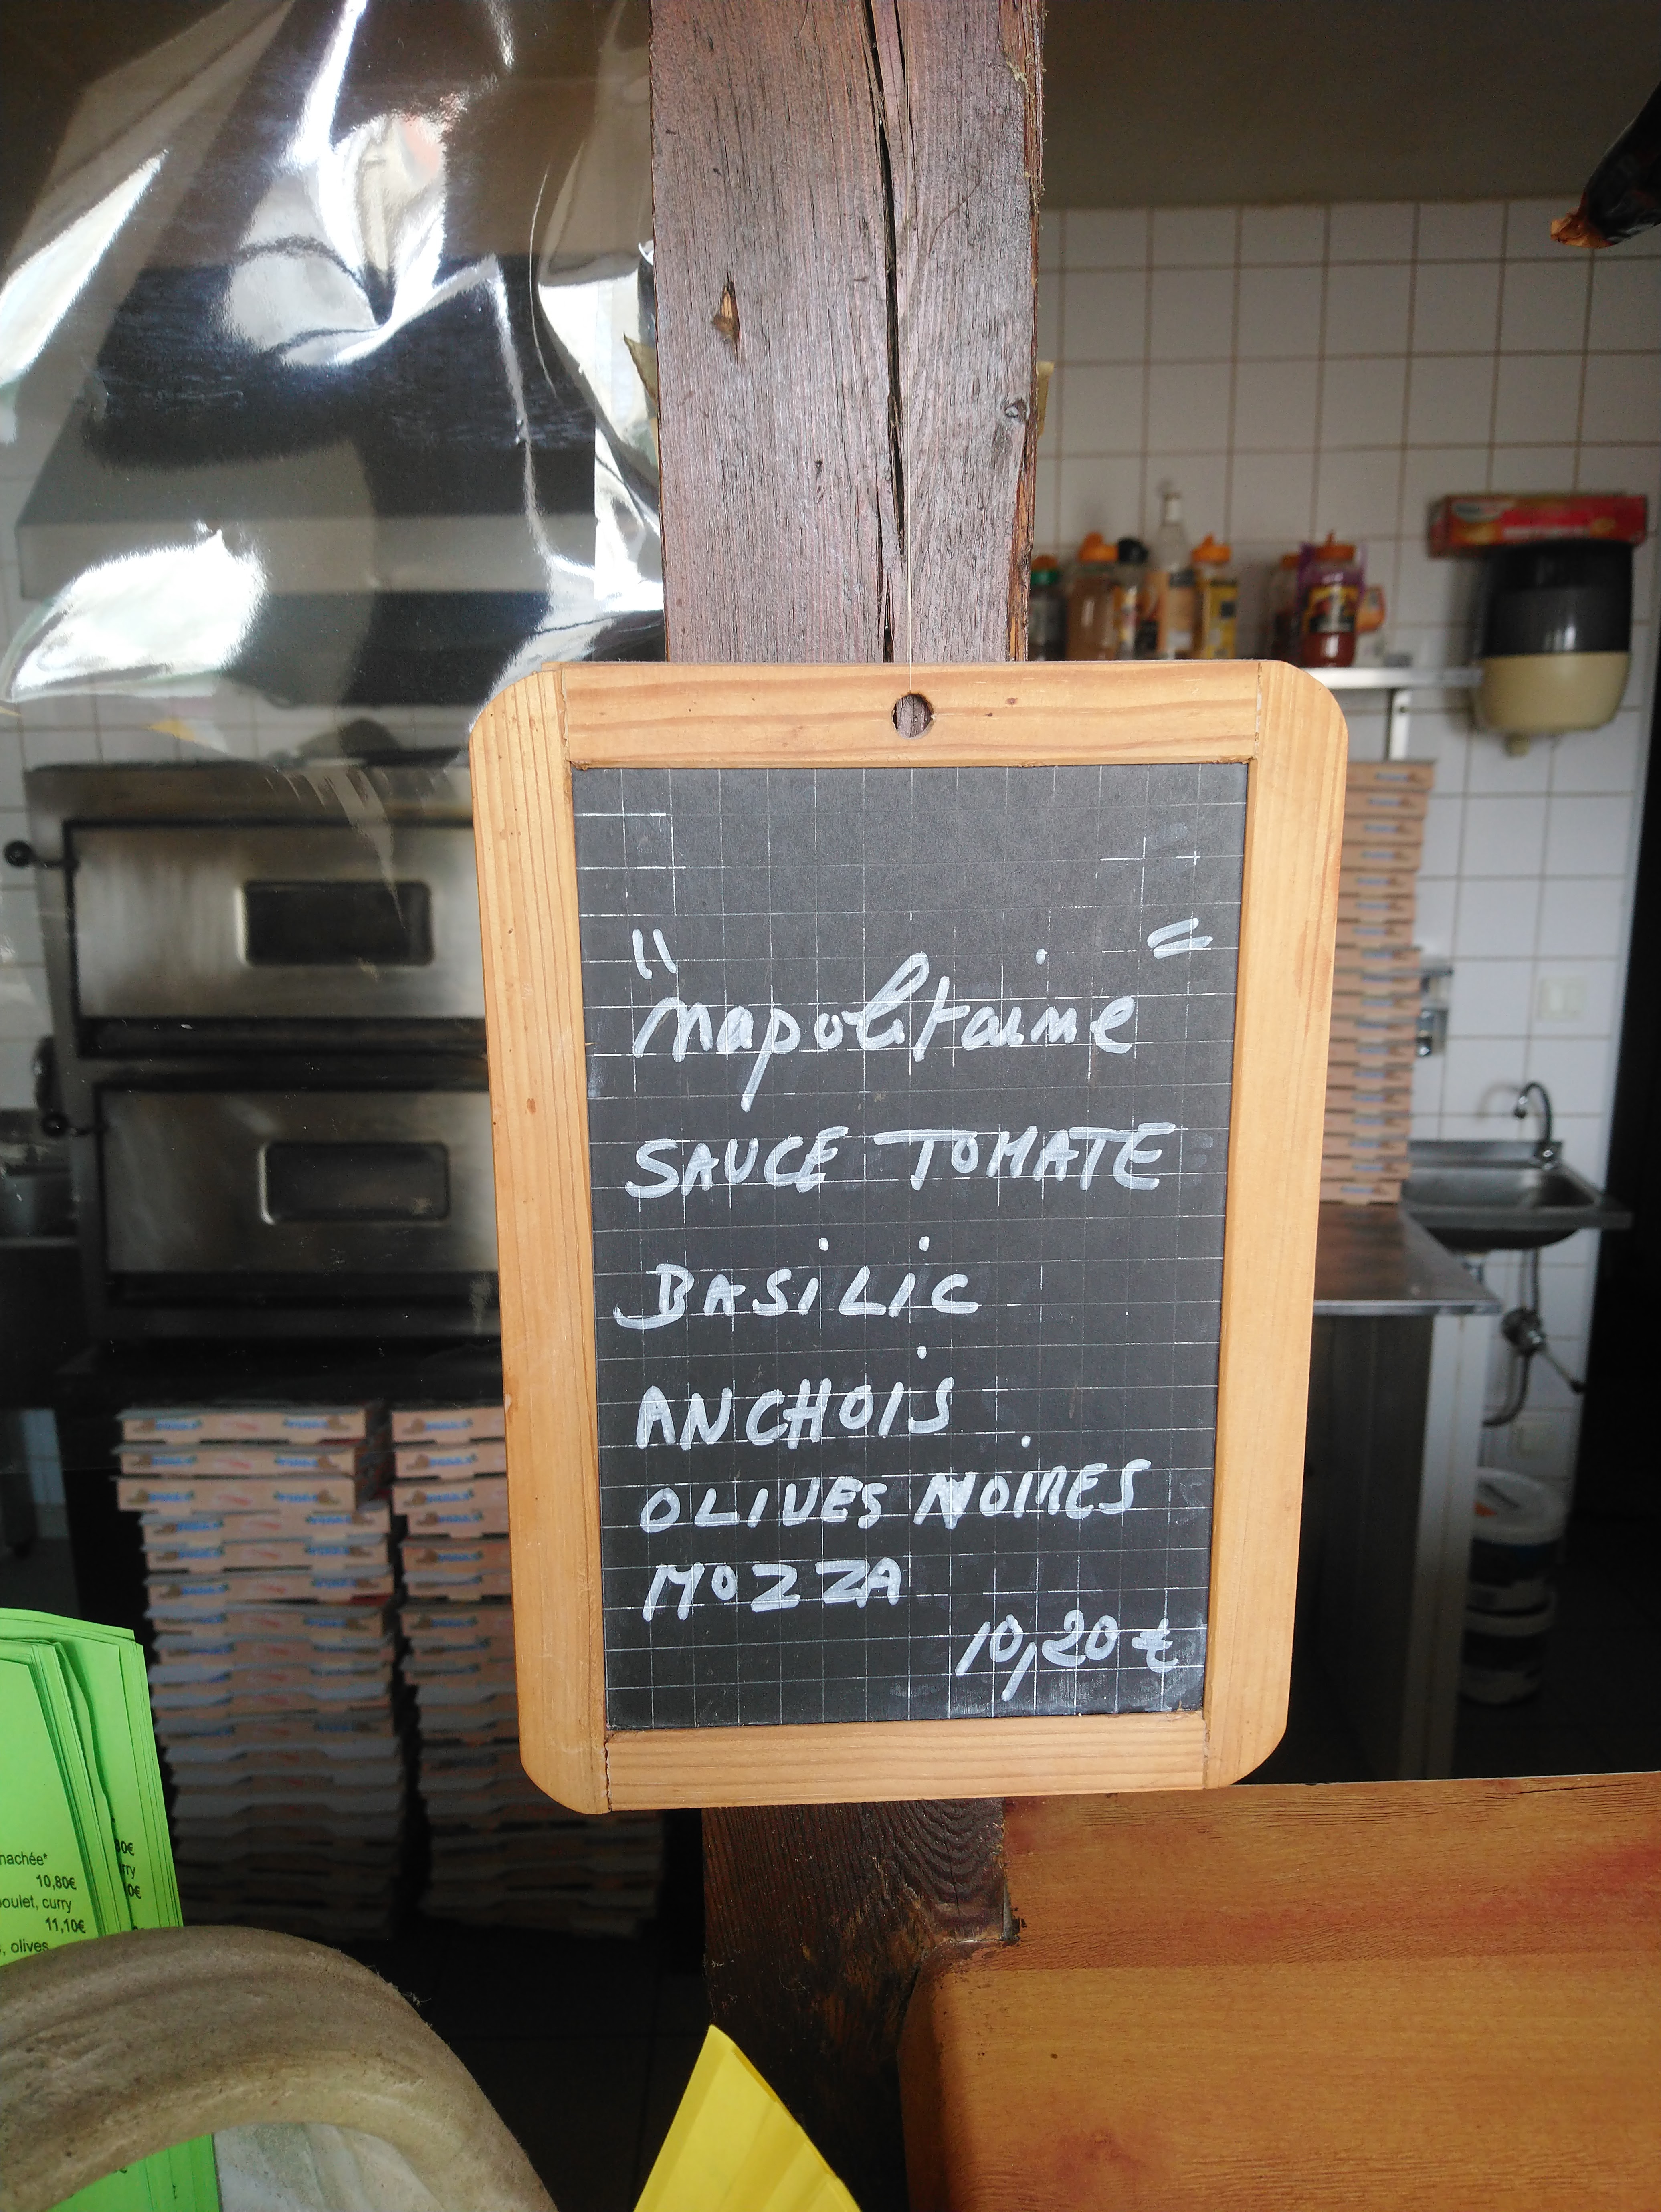 "napolitaine"
SAUCE TOMATE
BASiLiC
ANCHOIS
OLIVES NOIRES
MOZZA
10,20 €
hachée*
10,80€
poulet, curry
11,10€
, olives